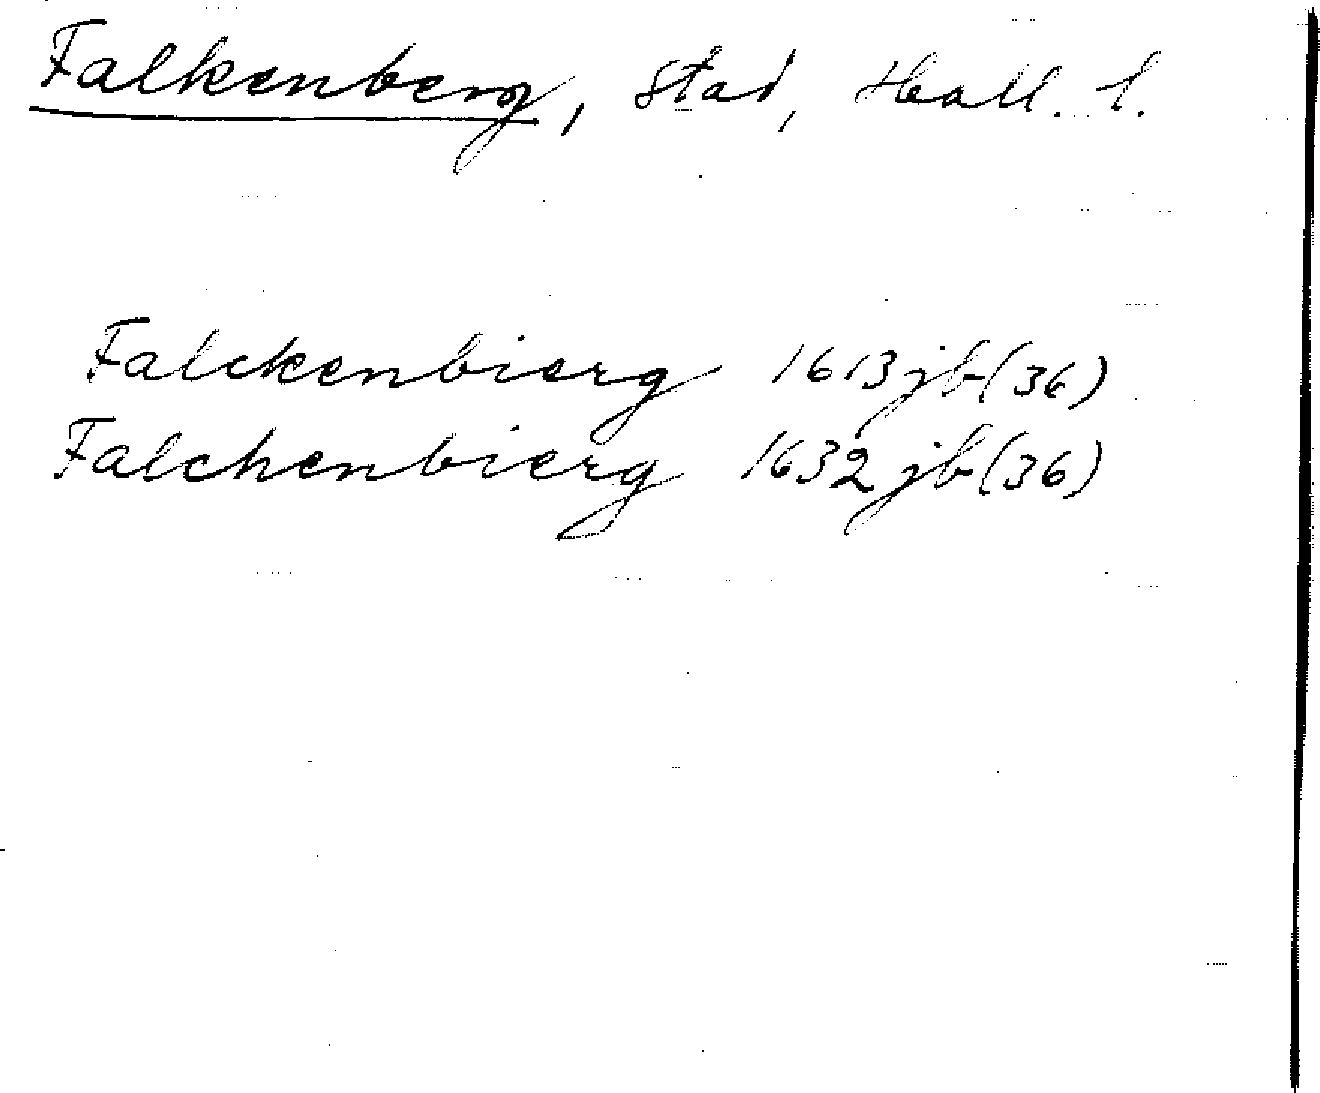 Falkenberg, stad, Hall. l.
Falckenbierg 1613 jb (36)
Falchenbierg 1632 jb (36)